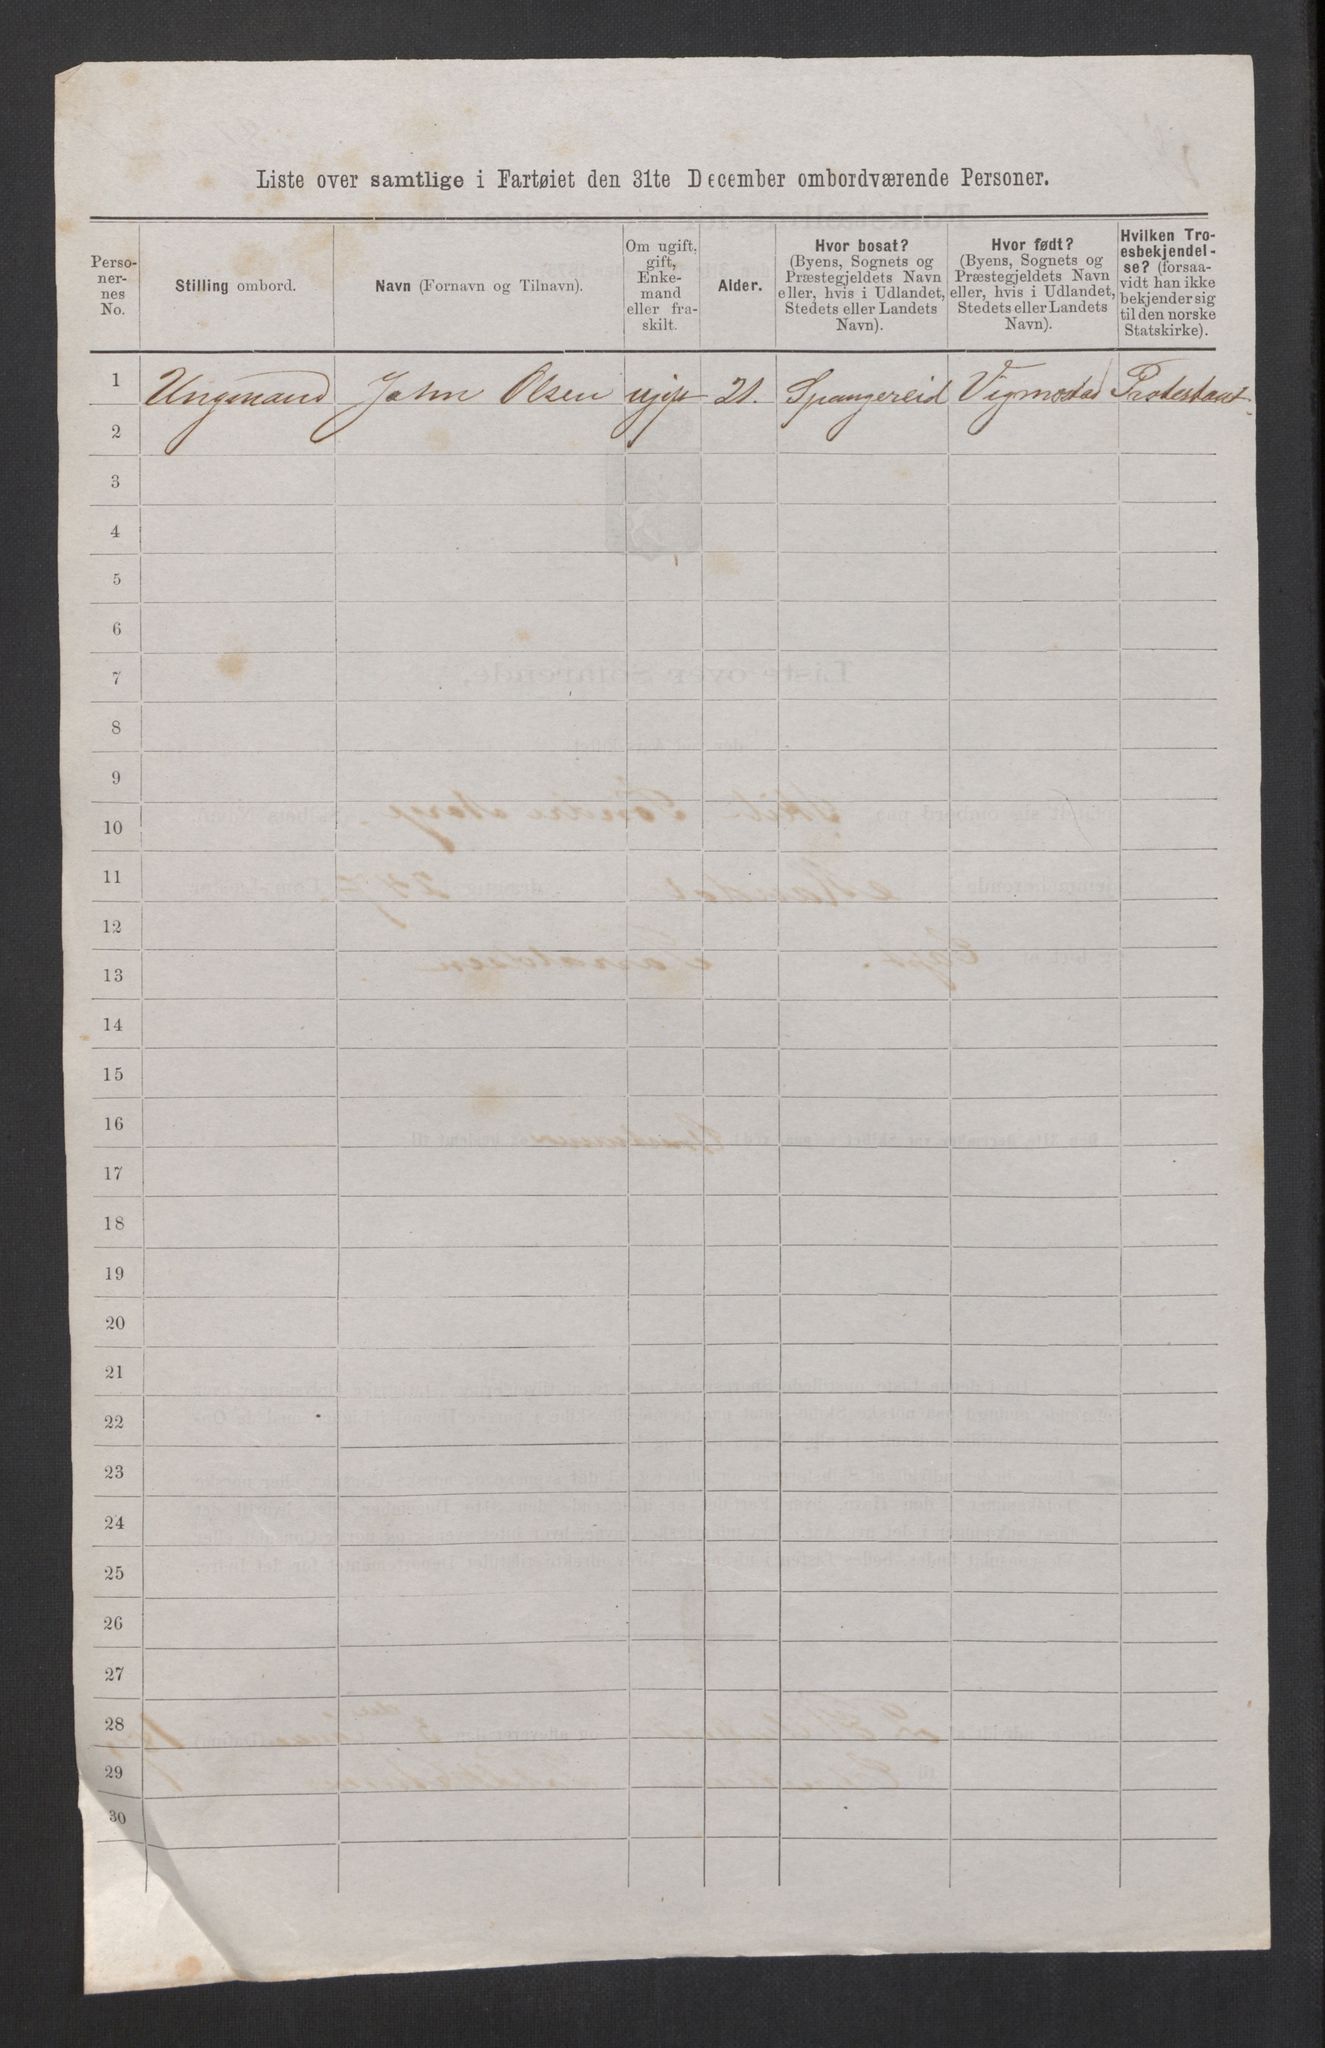 Liste over samtlige i Fartøiet den 31te December ombordværende Personer.
Perso-
ner-
nes
No.
Stilling ombord.
Navn (Fornavn og Tilnavn).
Om ugift,
gift,
Enke-
mand
eller fra-
skilt.
Alder.
Hvor bosat?
(Byens, Sognets og
Præstegjeldets Navn
eller, hvis i Udlandet,
Stedets eller Landets
Navn).
Hvor født?
(Byens, Sognets og
Præstegjeldets Navn
eller, hvis i Udlandet,
Stedets eller Landets
Navn).
Hvilken Tro-
esbekjendel-
se? (forsaa-
vidt han ikke
bekjender sig
til den norske
Statskirke).
1 Ungmand John Olsen ugift 21. Spangereid Vigmostad Protestant
2
3
4
5
6
7
8
9
10
11
12
13
14
15
16
17
18
19
20
21
22
23
24
25
26
27
28
29
30